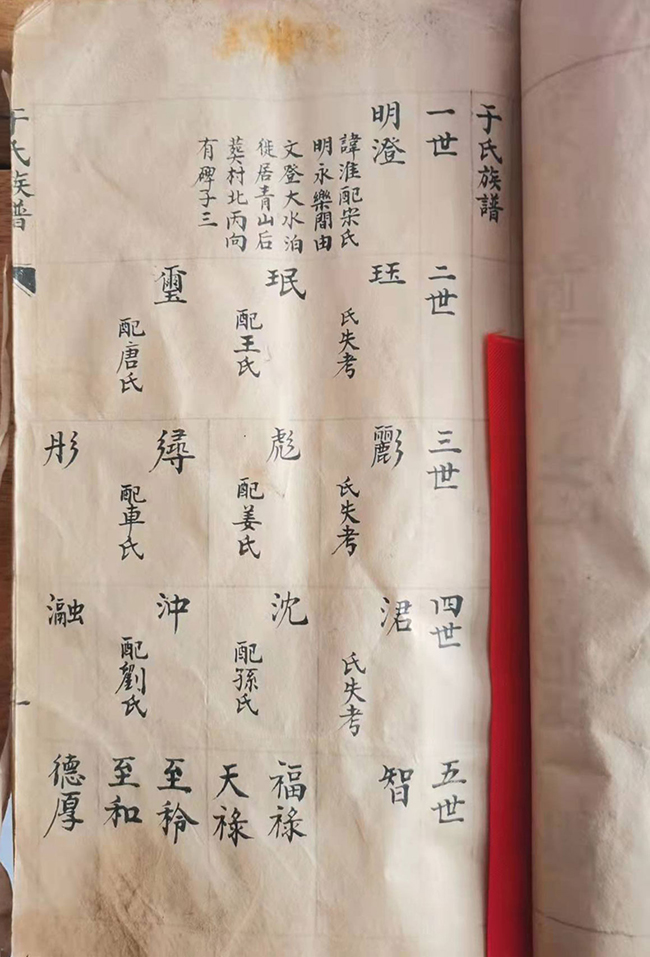 于氏族譜
一世
明澄
諱淮配宋氏
明永樂間由
文登大水泊
徙居青山后
葬村北丙向
有碑子三
二世
珏
氏失考
珉
配王氏
璽
配唐氏
三世
彲
氏失考
彪
配姜氏
配車氏
彤
四世
涒
氏失考
沈
配孫氏
沖
配劉氏
瀜
五世
智
福祿
天祿
至和
德厚
于氏族譜
一